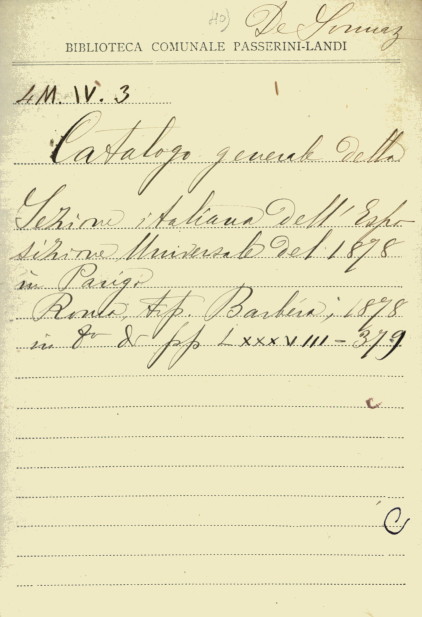 De Sonnaz
BIBLIOTECA COMUNALE PASSERINI-LANDI
4M. IV. 3
Catalogo generale della
Sezione italiana dell'Espo
sizione Universale del 1878
in Parigi
Roma, tip. Barbéra, 1878
in 8º di pp LXXXVIII-379
C